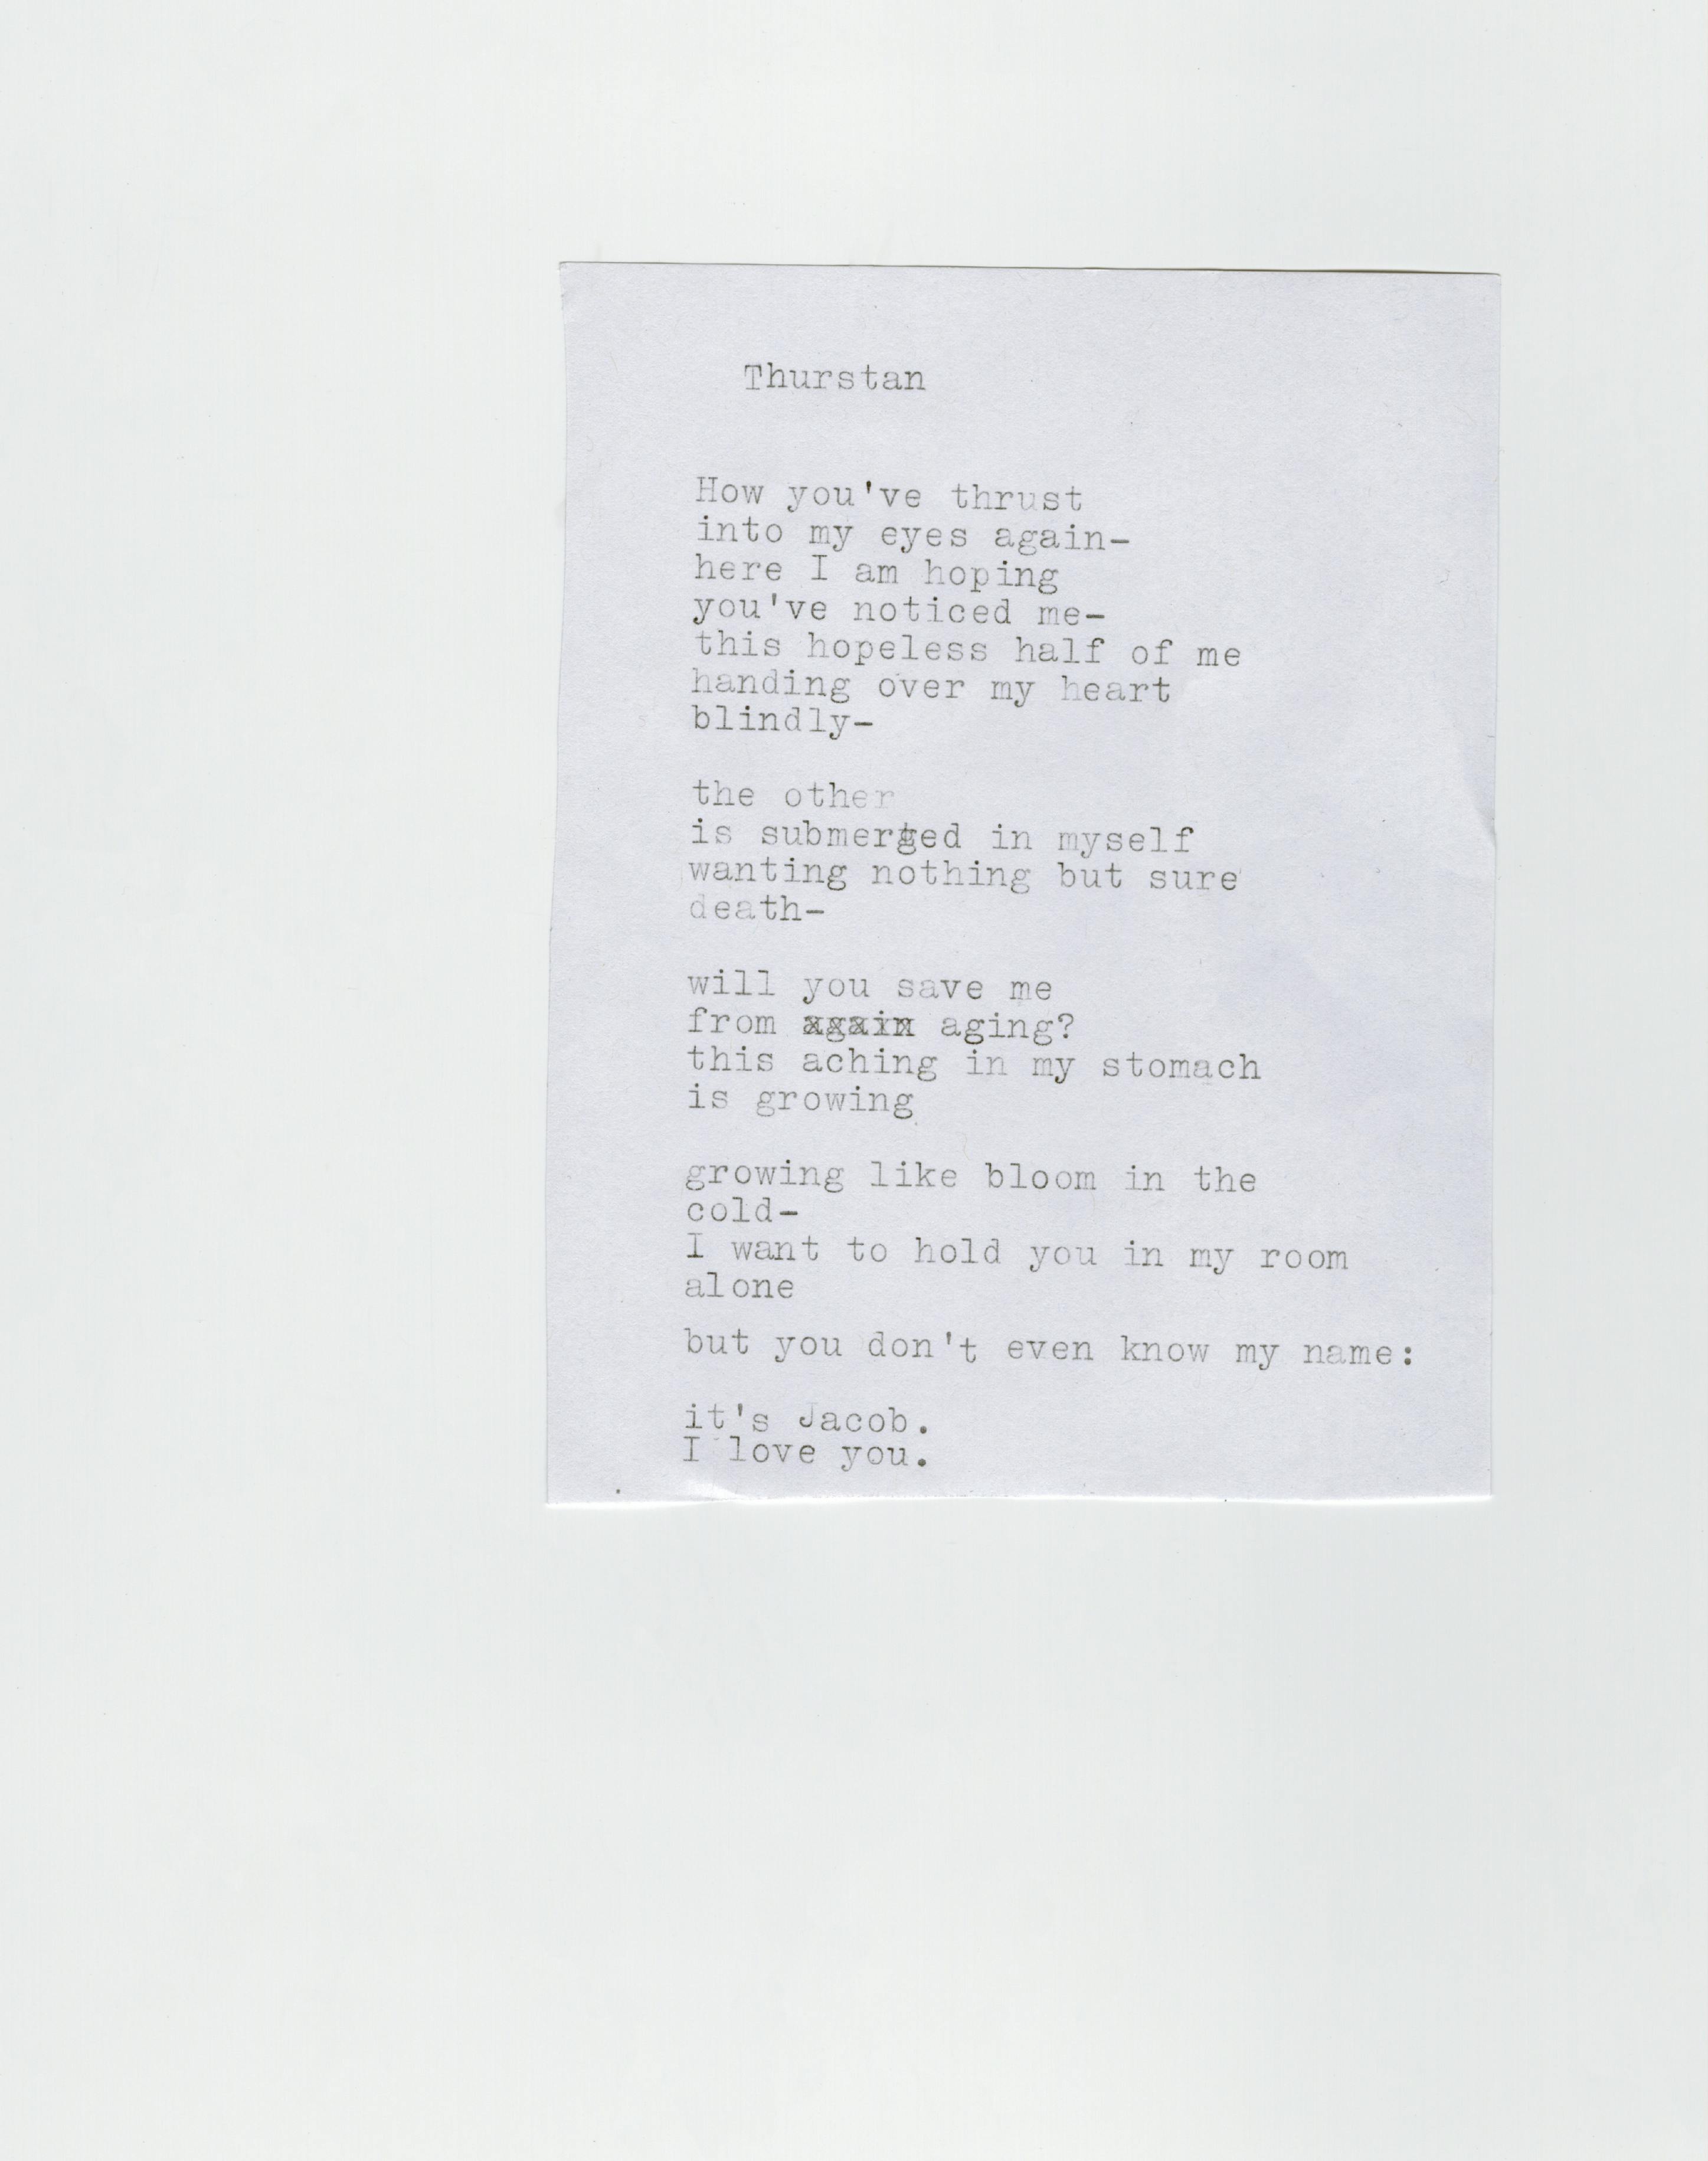 Thurstan
How you've thrust
into my eyes again-
here I am hoping
you've noticed me-
this hopeless half of me
handing over my heart
blindly-
the other
is submerged in myself
wanting nothing but sure
death-
will you save me
from again aging?
this aching in my stomach
is growing
growing like bloom in the
cold-
I want to hold you in my room
alone
but you don't even know my name:
it's Jacob.
I love you.